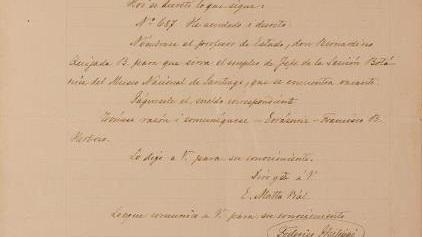 Hoi se decretó lo que sigue:
Nº 687. He acordado i decreto:
Nómbrase al profesor de Estado, don Bernardino
Quijada B. para que sirva el empleo de Jefe de la Sección Botá-
nica del Museo Nacional de Santiago, que se encuentra vacante.
Páguesele el sueldo correspondiente
Tómese razón i comuníquese — Errázuriz — Francisco J.
Herboso.
Lo digo a V. para su conocimiento.
Dios gde a V.
E. Matta Vial
Lo que comunico a V. para su conocimiento
Federico